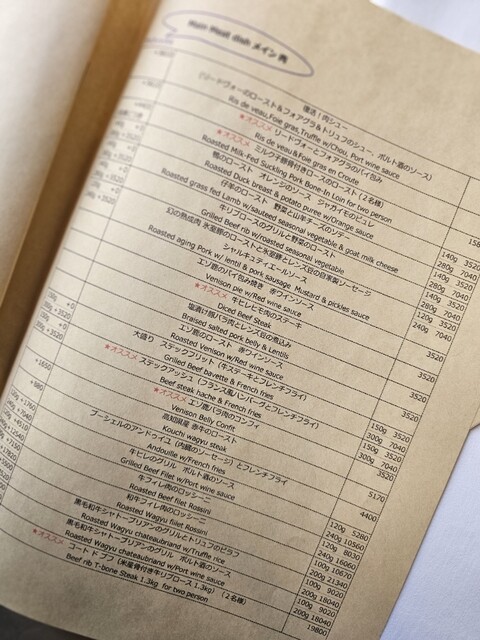 Main Meat dish メイン 肉
復活！肉シュー
(リードヴォーのロースト＆フォアグラ＆トリュフのシュー、ポルト酒のソース)
Ris de veau,Foie gras,Truffle w/Chou, Port wine sauce
★オススメ リードヴォーとフォアグラのパイ包み
Ris de veau&Foie gras en Croute
★オススメ ミルク子豚骨付きロースのロースト(２名様)
Roasted Milk-Fed Suckling Pork Bone-In Loin for two person
鴨のロースト オレンジのソース ジャガイモのピュレ
Roasted Duck breast & potato puree w/Orange sauce
仔羊のロースト 野菜と山羊チーズのソテー
Roasted grass fed Lamb w/sauteed seasonal vegetable & goat milk cheese
牛リブロースのグリルと野菜のロースト
Grilled Beef rib w/roasted seasonal vegetable
幻の熟成肉 氷室豚のローストと氷室豚とレンズ豆の自家製ソーセージ
シャルキュティエールソース
Roasted aging Pork w/ lentil & pork sausage Mustard & pickles sauce
エゾ鹿のパイ包み焼き 赤ワインソース
Venison pie w/Red wine sauce
★オススメ 牛ヒレビモ肉のステーキ
Diced Beef Steak
塩漬け豚バラ肉とレンズ豆の煮込み
Braised salted pork belly & Lentils
エゾ鹿のロースト 赤ワインソース
Roasted Venison w/Red wine sauce
大盛り ステックフリット (牛ステーキとフレンチフライ)
Grilled Beef bavette & French fries
★オススメ ステックアッシュ (フランス風ハンバーグとフレンチフライ)
Beef steak hache & French fries
★オススメ エゾ鹿バラ肉のコンフィ
Venison Belly Confit
高知県産 赤牛のロースト
Kouchi wagyu steak
ブーシェルのアンドゥイユ (内臓のソーセージ) とフレンチフライ
Andouille w/French fries
牛ヒレのグリル ポルト酒のソース
Grilled Beef Filet w/Port wine sauce
牛フィレ肉のロッシーニ
Roasted Beef filet Rossini
和牛フィレ肉のロッシーニ
Roasted Wagyu filet Rossini
黒毛和牛シャトーブリアンのグリルとトリュフのピラフ
Roasted Wagyu chateaubriand w/Truffle rice
黒毛和牛シャトーブリアンのグリル ポルト酒のソース
Roasted Wagyu chateaubriand w/Port wine sauce
★オススメ コート ド ブフ (米産骨付き牛リブロース 1.3kg) (２名様)
Beef rib T-bone Steak 1.3kg for two person
140g 3520
280g 7040
140g 3520
280g 7040
120g 3520
240g 7040
3520
3520
3520
150g 3520
300g 7040
150g 3520
300g 7040
3520
5170
4400
120g 5280
240g 10560
120g 8030
240g 16060
100g 10670
200g 21340
100g 9020
200g 18040
100g 9020
200g 18040
19800